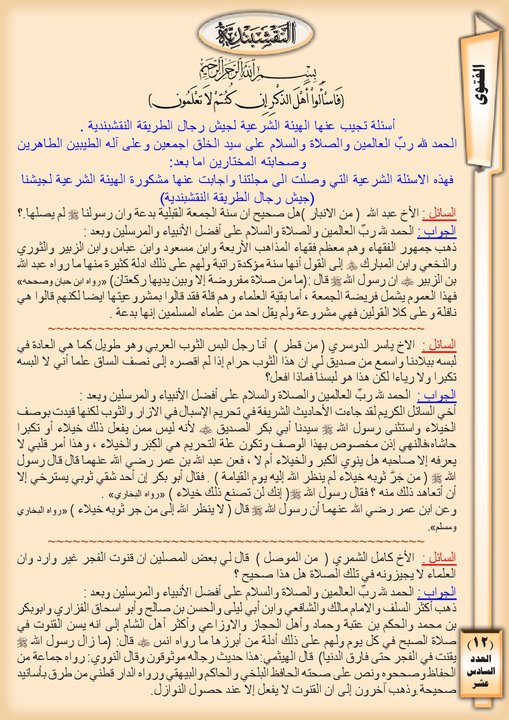 النقشبندية
بسم الله الرحمن الرحيم
(فاسألوا أهل الذكر إن كنتم لا تعلمون)
أسئلة تجيب عنها الهيئة الشرعية لجيش رجال الطريقة النقشبندية .
الحمد لله ربّ العالمين والصلاة والسلام على سيد الخلق اجمعين وعلى آله الطيبين الطاهرين
وصحابته المختارين اما بعد:
فهذه الاسئلة الشرعية التي وصلت الى مجلتنا واجابت عنها مشكورة الهيئة الشرعية لجيشنا
(جيش رجال الطريقة النقشبندية)
السائل : الأخ عبد الله ( من الانبار )هل صحيح ان سنة الجمعة القبلية بدعة وان رسولنا ﷺ لم يصلها.؟
الجواب : الحمد لله ربّ العالمين والصلاة والسلام على أفضل الأنبياء والمرسلين وبعد :
ذهب جمهور الفقهاء وهم معظم فقهاء المذاهب الأربعة وابن مسعود وابن عباس وابن الزبير والثوري
والنخعي وابن المبارك الى القول أنها سنة مؤكدة راتبة ولهم على ذلك ادلة كثيرة منها ما رواه عبد الله
بن الزبير ان رسول الله ﷺ قال :(ما من صلاة مفروضة إلا وبين يديها ركعتان) «رواه ابن حبان وصححه»
فهذا العموم يشمل فريضة الجمعة ، أما بقية العلماء وهم قلة فقد قالوا بمشروعيتها ايضا لكنهم قالوا هي
نافلة وعلى كلا القولين فهي مشروعة ولم يقل احد من علماء المسلمين إنها بدعة .
السائل : الأخ ياسر الدوسري ( من قطر ) أنا رجل البس الثوب العربي وهو طويل كما هي العادة في
لبسه ببلادنا واسمع من صديق لي ان هذا الثوب حرام إذا لم اقصره إلى نصف الساق علما أني لا البسه
تكبرا ولا رياءا لكن هذا هو لبسنا فماذا افعل؟
الجواب : الحمد لله ربّ العالمين والصلاة والسلام على أفضل الأنبياء والمرسلين وبعد :
أخي السائل الكريم لقد جاءت الأحاديث الشريفة في تحريم الإسبال في الازار والثوب لكنها قيدت بوصف
الخيلاء واستثنى رسول الله ﷺ سيدنا أبي بكر الصديق لأنه ليس ممن يفعل ذلك خيلاء أو تكبرا
حاشاه،فالنهي إذن مخصوص بهذا الوصف وتكون علة التحريم هي الكِبر والخيلاء ، وهذا أمر قلبي لا
يعرفه إلا صاحبه هل ينوي الكبر والخيلاء أم لا ، فعن عبد الله بن عمر رضي الله عنهما قال قال رسول
الله ﷺ ( من جرَّ ثوبه خيلاء لم ينظر الله إليه يوم القيامة ) . فقال أبو بكر إن أحد شقي ثوبي يسترخي إلا
أن أتعاهد ذلك منه ؟ فقال رسول الله ﷺ( إنك لن تصنع ذلك خيلاء ) «رواه البخاري» .
وعن ابن عمر رضي الله عنهما أن رسول الله ﷺ قال ( لا ينظر الله إلى من جر ثوبه خيلاء ) «رواه البخاري
ومسلم».
السائل : الأخ كامل الشمري ( من الموصل ) قال لي بعض المصلين ان قنوت الفجر غير وارد وان
العلماء لا يجيزونه في تلك الصلاة هل هذا صحيح ؟
الجواب : الحمد لله ربّ العالمين والصلاة والسلام على أفضل الأنبياء والمرسلين وبعد :
ذهب أكثر السلف والامام مالك والشافعي وابن أبي ليلى والحسن بن صالح وأبو اسحاق الفزاري وابوبكر
بن محمد والحكم بن عتبة وحماد وأهل الحجاز والاوزاعي وأكثر أهل الشام إلى انه يسن القنوت في
صلاة الصبح في كل يوم ولهم على ذلك أدلة من أبرزها ما رواه انس قال: (ما زال رسول الله ﷺ
يقنت في الفجر حتى فارق الدنيا) قال الهيثمي:هذا حديث رجاله موثوقون وقال النووي: رواه جماعة من
الحفاظ وصححوه ونص على صحته الحافظ البلخي والحاكم والبيهقي ورواه الدار قطني من طرق بأسانيد
صحيحة.وذهب آخرون إلى ان القنوت لا يفعل إلا عند حصول النوازل.
الفتوى
(١٢)
العدد
السادس
عشر